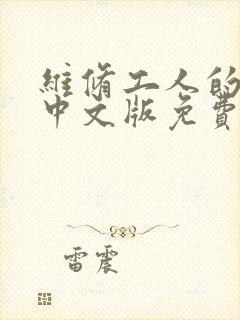 維脩工人的
中文版免費
雷震